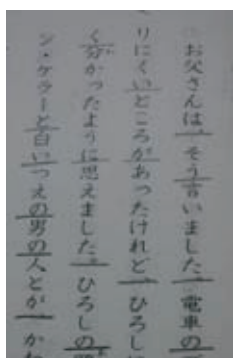 お父さんは、そう言いました。電車の
りにくいところがあったけれど、ひろしに
く分かったように思えました。ひろしの
ン・ケラーと白いつえの男の人とが、かわ